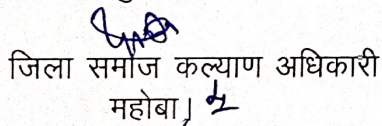 जिला समाज कल्याण अधिकारी
महोबा।